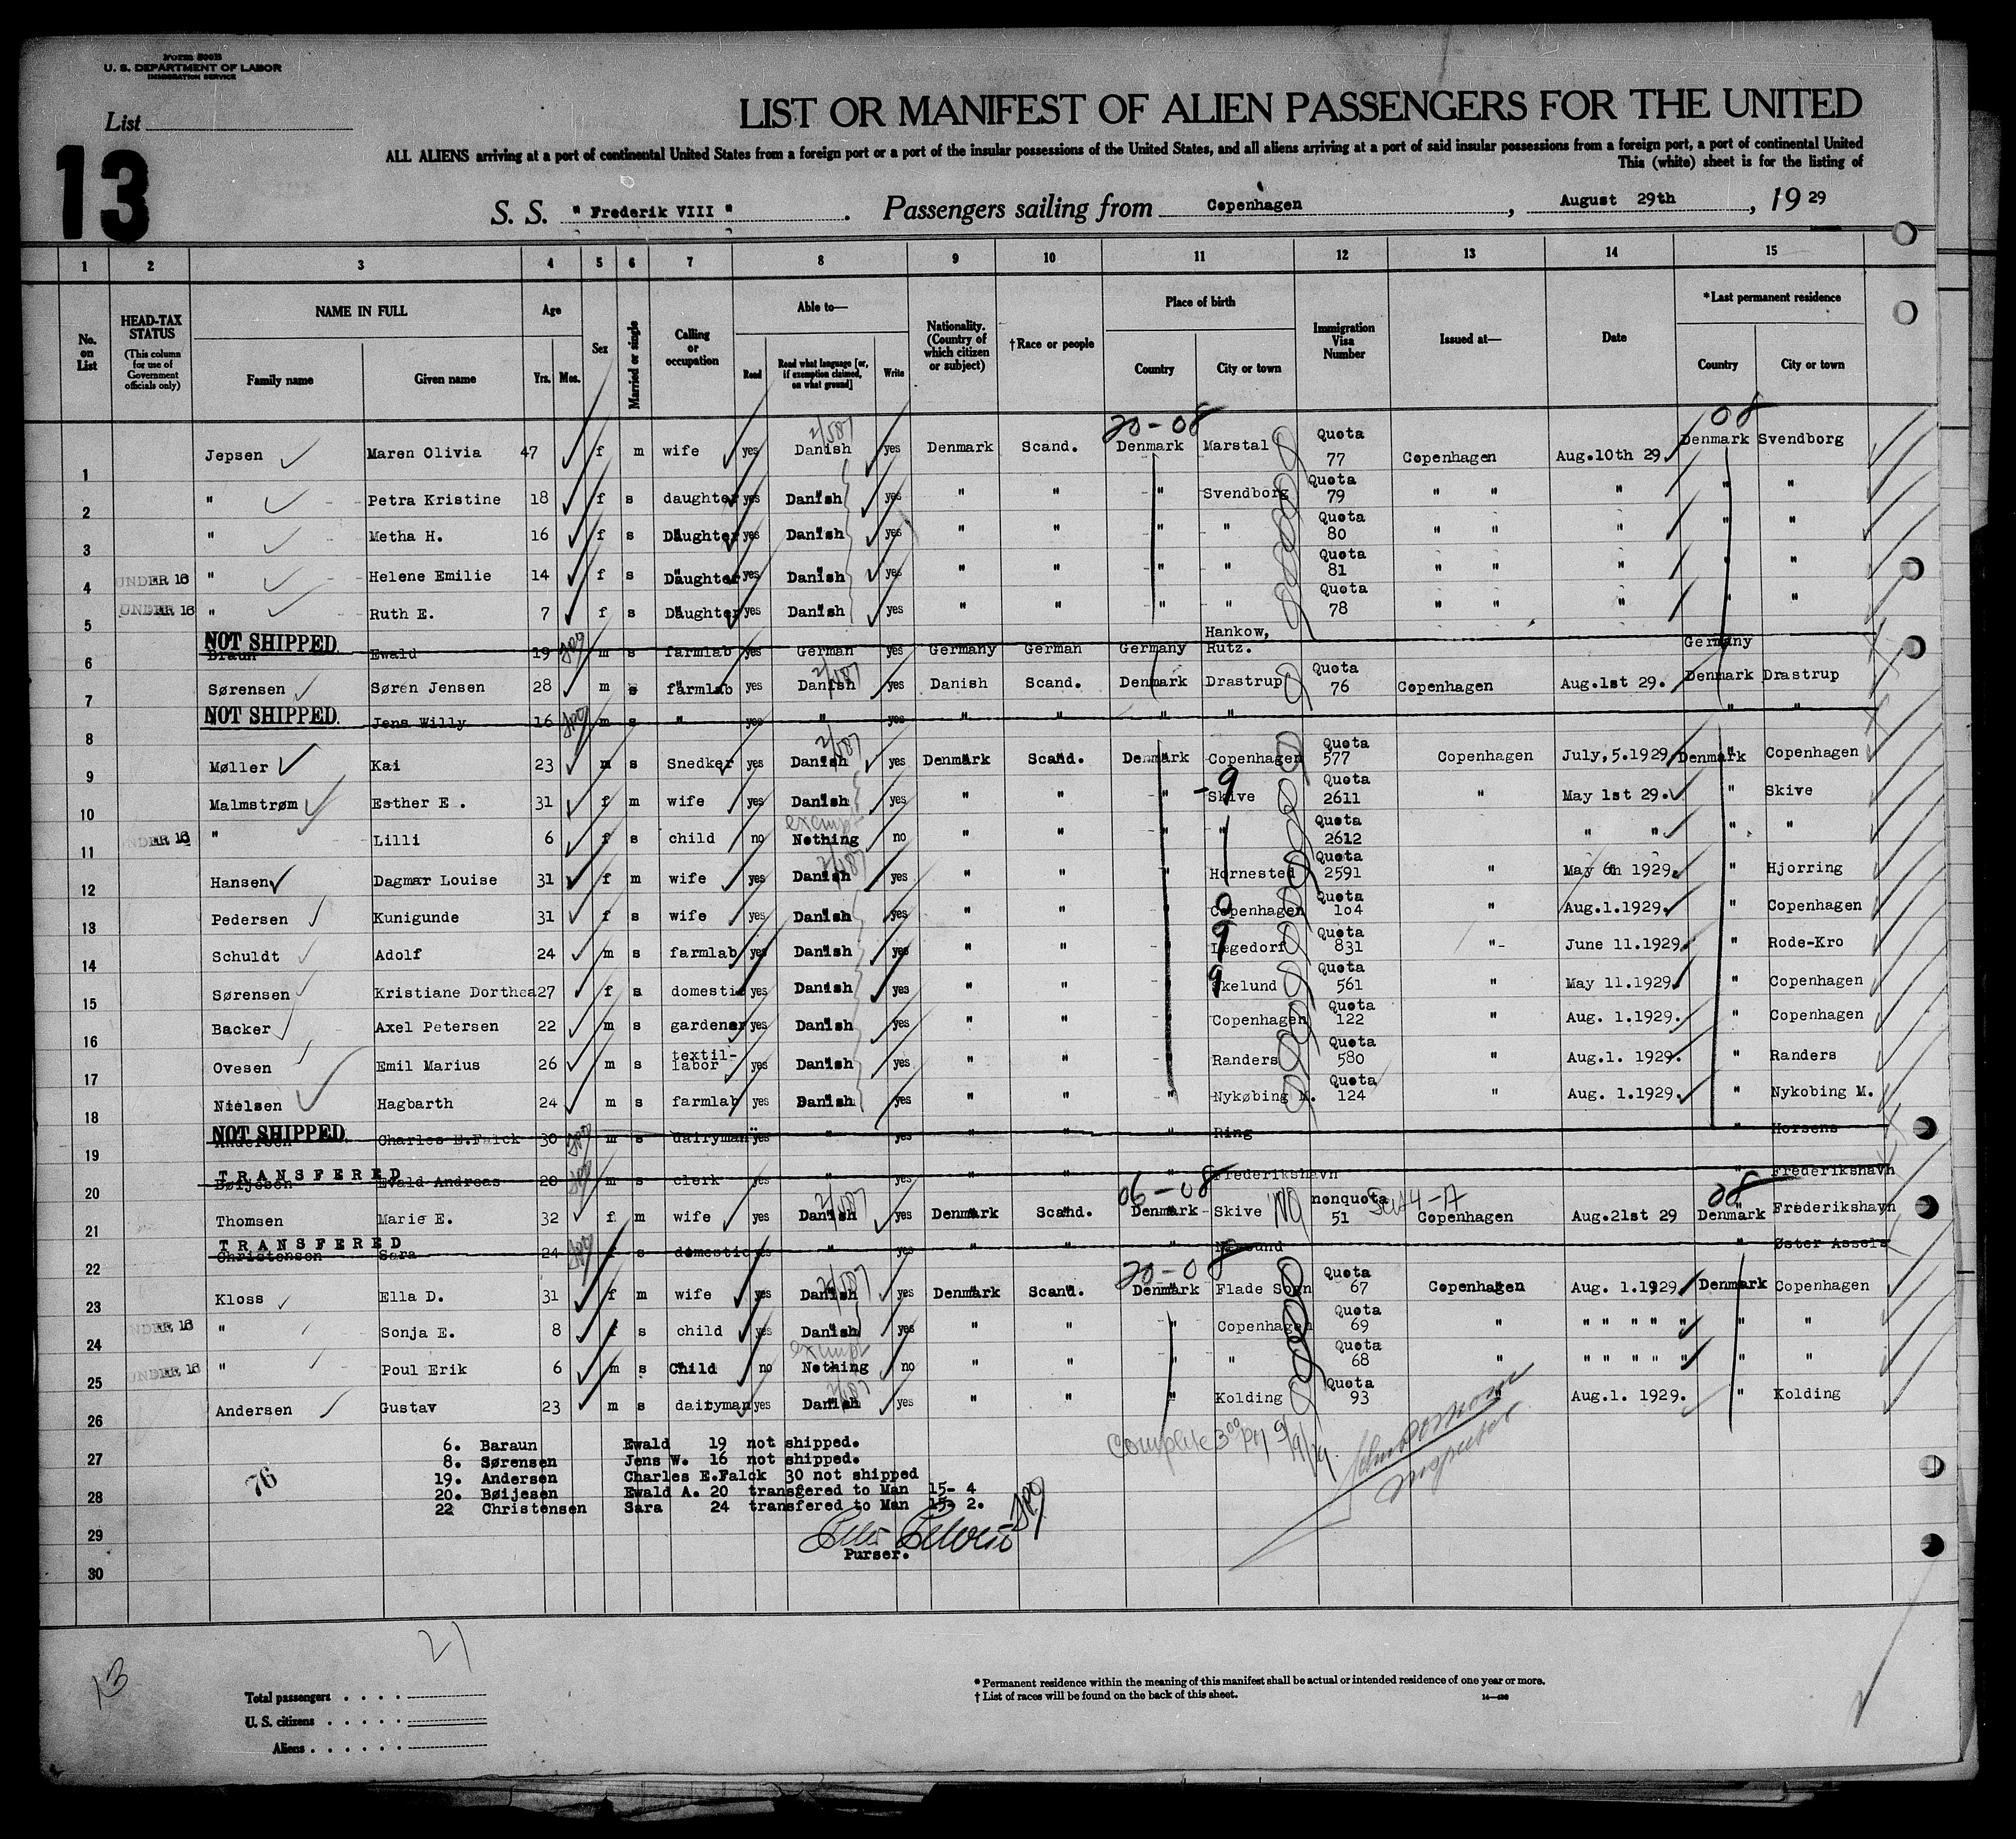 Form 500B
U. S. DEPARTMENT OF LABOR
IMMIGRATION SERVICE
List
13
LIST OR MANIFEST OF ALIEN PASSENGERS FOR THE UNITED
ALL ALIENS arriving at a port of continental United States from a foreign port or a port of the insular possessions of the United States, and all aliens arriving at a port of said insular possessions from a foreign port, a port of continental United
This (white) sheet is for the listing of
S. S. "Frederik VIII". Passengers sailing from Copenhagen, August 29th, 1929
1 2 3 4 5 6 7 8 9 10 11 12 13 14 15
No. on List
HEAD-TAX STATUS (This column for use of Government officials only)
NAME IN FULL Family name Given name
Age Yrs. Mos.
Sex
Married or single
Calling or occupation
Able to— Read Read what language [or, if exemption claimed, on what ground] Write
Nationality. (Country of which citizen or subject)
†Race or people
Place of birth Country City or town
Immigration Visa Number
Issued at—
Date
*Last permanent residence Country City or town
20-08 08
1 Jepsen Maren Olivia 47 f m wife yes Danish yes Denmark Scand. Denmark Marstal Quota 77 Copenhagen Aug.10th 29. Denmark Svendborg
2 " Petra Kristine 18 f s daughter yes Danish yes " " " Svendborg Quota 79 " " " " "
3 " Metha H. 16 f s Daughter yes Danish yes " " " " Quota 80 " " " " "
4 UNDER 16 " Helene Emilie 14 f s Daughter yes Danish yes " " " " Quota 81 " " " " "
5 UNDER 16 " Ruth E. 7 f s Daughter yes Danish yes " " " " Quota 78 " " " " "
6 NOT SHIPPED. Braun Ewald 19 m s farmlab yes German yes Germany German Germany Hankow, Rutz. Germany
7 Sørensen Søren Jensen 28 m s farmlab yes Danish yes Danish Scand. Denmark Drastrup Quota 76 Copenhagen Aug.1st 29. Denmark Drastrup
8 NOT SHIPPED. Jens Willy 16 m s " yes " yes " " " " " "
9 Møller Kai 23 m s Snedker yes Danish yes Denmark Scand. Denmark Copenhagen Quota 577 Copenhagen July,5.1929. Denmark Copenhagen
10 Malmstrøm Esther E. 31 f m wife yes Danish yes " " " Skive Quota 2611 " May 1st 29. " Skive
11 UNDER 16 " Lilli 6 f s child no exempt Nothing no " " " " Quota 2612 " " " "
12 Hansen Dagmar Louise 31 f m wife yes Danish yes " " " Hornested Quota 2591 " May 6th 1929. " Hjorring
13 Pedersen Kunigunde 31 f s wife yes Danish yes " " Copenhagen Quota 104 " Aug.1.1929. " Copenhagen
14 Schuldt Adolf 24 m s farmlab yes Danish yes " " Løgedorf Quota 831 " June 11.1929. " Rode-Kro
15 Sørensen Kristiane Dorthea 27 f s domestic yes Danish yes " " Skelund Quota 561 " May 11.1929. " Copenhagen
16 Backer Axel Petersen 22 m s gardener yes Danish yes " " Copenhagen Quota 122 " Aug. 1.1929. " Copenhagen
17 Ovesen Emil Marius 26 m s textil-labor yes Danish yes " " Randers Quota 580 " Aug.1. 1929. " Randers
18 Nielsen Hagbarth 24 m s farmlab yes Danish yes " " " Nykøbing M. Quota 124 " Aug. 1.1929. " Nykobing M.
19 NOT SHIPPED. Andersen Charles E.Falck 30 m s dairyman yes " yes " " " Ring " Horsens
20 TRANSFERED Bøijesen Evald Andreas 20 m s clerk yes " yes " " " Frederikshavn " Frederikshavn
06-08 08
21 Thomsen Marie E. 32 f m wife yes Danish yes Denmark Scand. Denmark Skive nonquota 51 Sec 4-A Copenhagen Aug.21st 29 Denmark Frederikshavn
22 TRANSFERED Christensen Sara 24 f s domestic yes " yes " " " " Øster Assels
20-08
23 Kloss Ella D. 31 f m wife yes Danish yes Denmark Scand. Denmark Flade Sogn Quota 67 Copenhagen Aug. 1.1929. Denmark Copenhagen
24 UNDER 16 " Sonja E. 8 f s child yes Danish yes " " " Copenhagen Quota 69 " " " " " " " "
25 UNDER 16 " Poul Erik 6 m s Child no exempt Nothing no " " " " Quota 68 " " " " " " " "
26 Andersen Gustav 23 m s dairyman yes Danish yes " " " Kolding Quota 93 " Aug.1. 1929. " Kolding
Complete 3 00 PM 9/9/29.
Inspector
27
28
29
30
76
6. Baraun Ewald 19 not shipped.
8. Sørensen Jens W. 16 not shipped.
19. Andersen Charles E.Falck 30 not shipped
20. Bøijesen Ewald A. 20 transfered to Man 15- 4
22 Christensen Sara 24 transfered to Man 15- 2.
Purser.
21
13
Total passengers
U. S. citizens
Aliens
* Permanent residence within the meaning of this manifest shall be actual or intended residence of one year or more.
† List of races will be found on the back of this sheet.